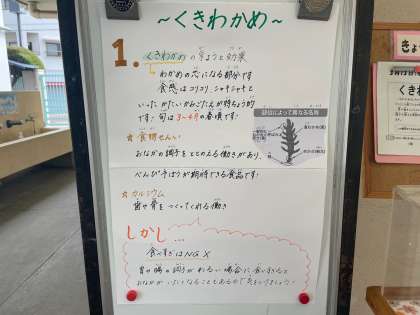 ～くきわかめ～
1. くきわかめの特ちょうと効果
わかめの芯になる部分です
食感はコリコリ、シャキシャキと
いったかたいかみごたえが特ちょう的
です！旬は3～4月の春頃です！
部位によって異なる名称
☆食物せんい
おなかの調子をととのえる働きがあり、
べんぴ予ぼうが期待できる食品です！
☆カルシウム
歯や骨をつくってくれる働き
しかし…
食べすぎはNG×
胃や腸の調子がわるい場合に食いすぎると
おなかがいたくなることもあるので気をつけましょう
きょ
くき